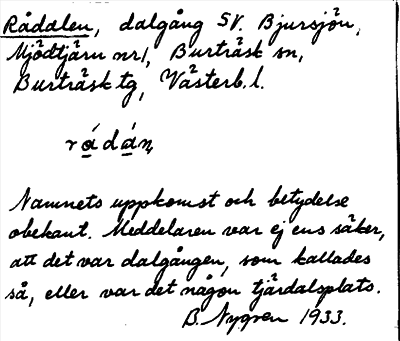 Rådalen, dalgång SV. Bjursjön,
Mjödtjärn nr 1, Burträsk sn,
Burträsk tg, Västerb. l.
Namnets uppkomst och betydelse
obekant. Meddelaren var ej ens säker,
att det var dalgången, som kallades
så, eller var det någon tjärdalsplats.
B. Nygren 1933.